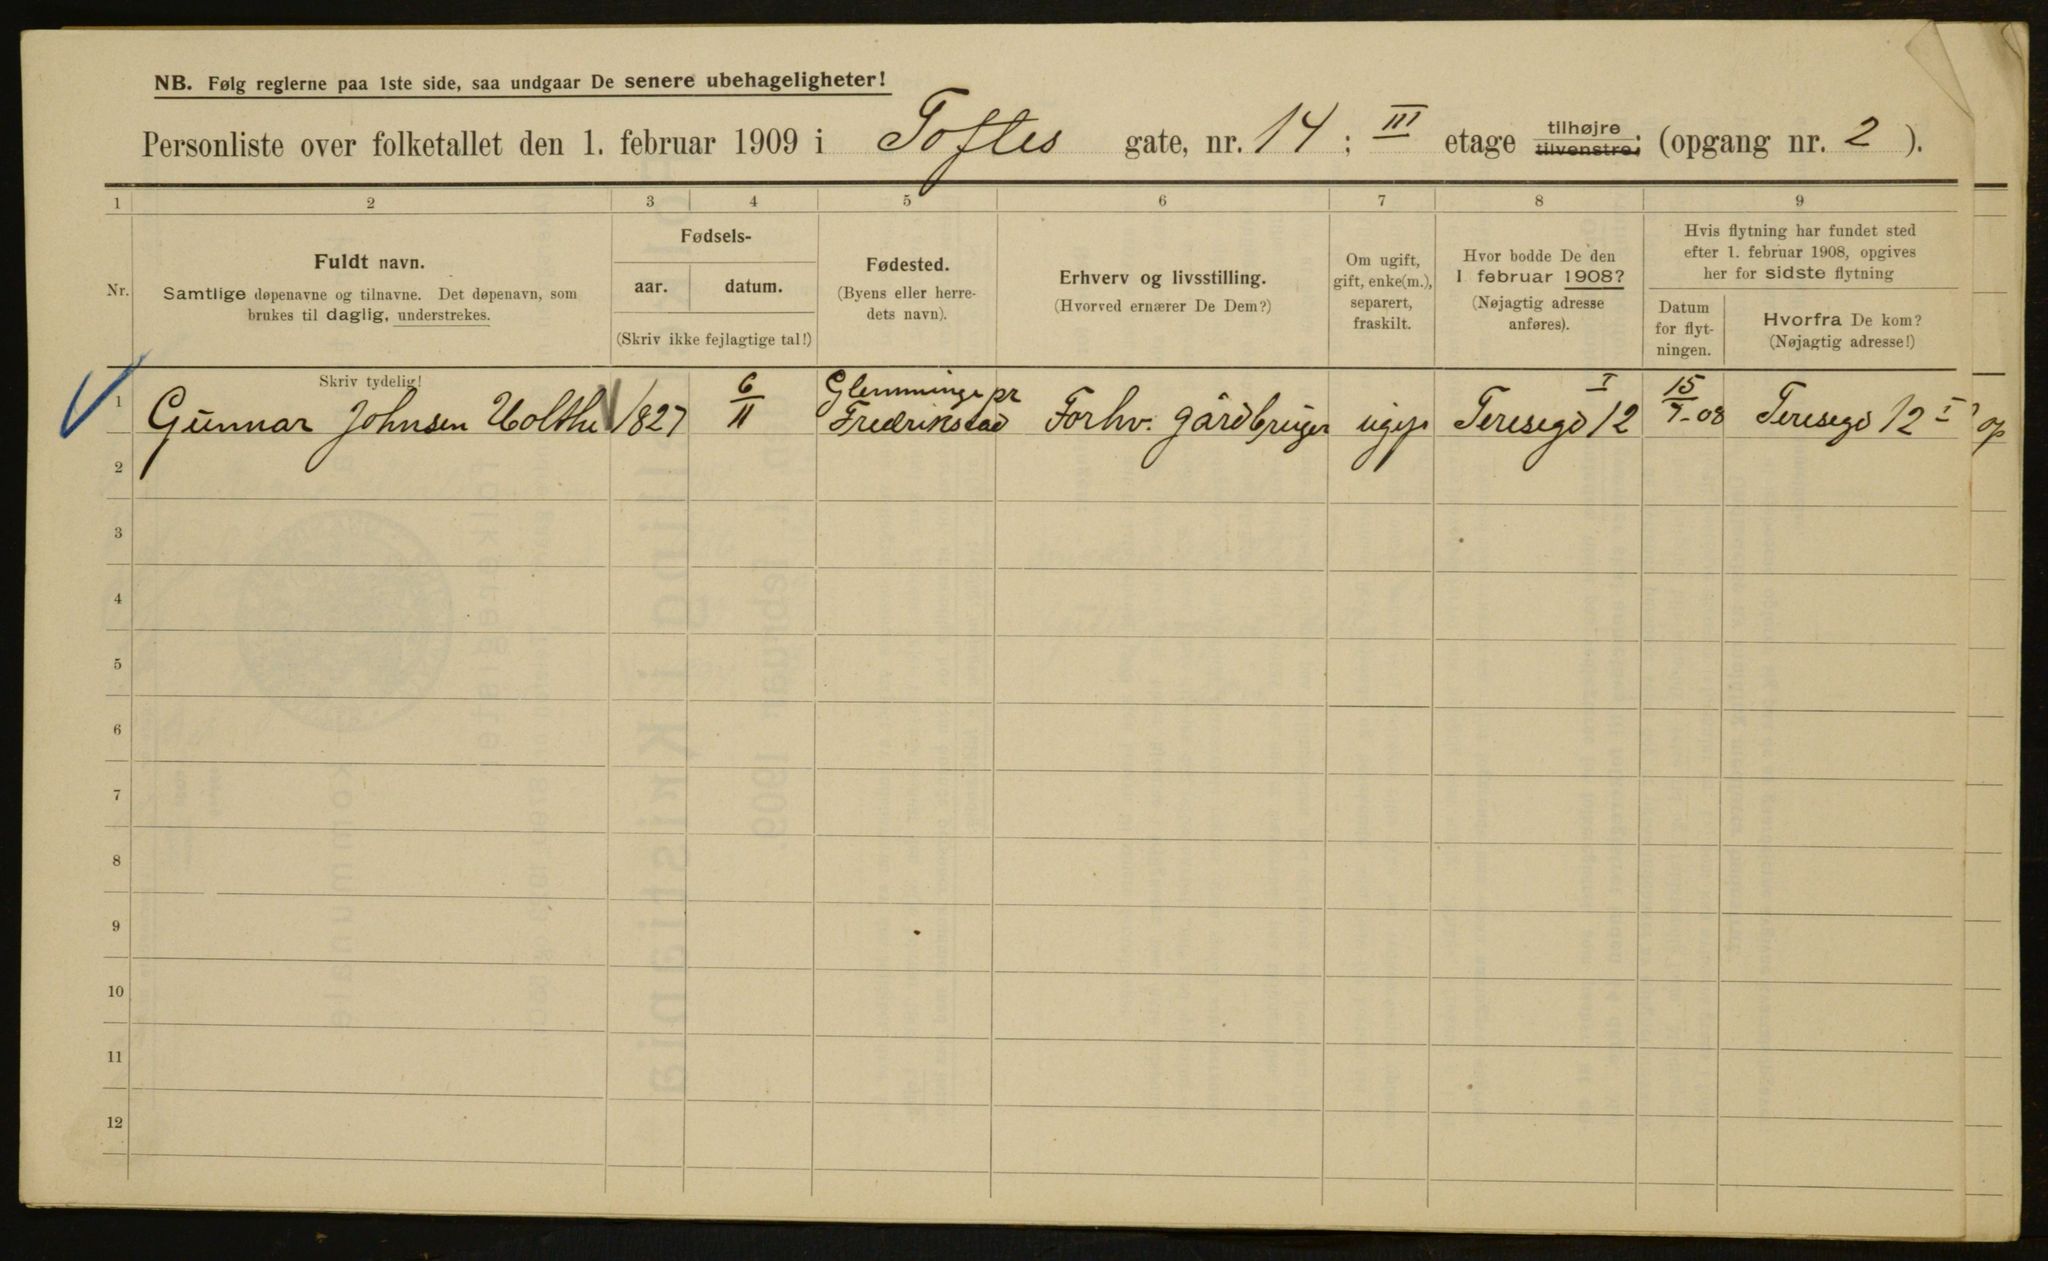 NB. Følg reglerne paa 1ste side, saa undgaar De senere ubehageligheter!
Personliste over folketallet den 1. februar 1909 i Toftes gate, nr. 14 ; III etage tilhøjre tilvenstre; (opgang nr. 2 ).
1 2 3 4 5 6 7 8 9
Nr.
Fuldt navn.
Samtlige døpenavne og tilnavne. Det døpenavn, som
brukes til daglig, understrekes.
Skriv tydelig!
Fødsels-
aar. datum.
(Skriv ikke fejlagtige tal!)
Fødested.
(Byens eller herre-
dets navn).
Erhverv og livsstilling.
(Hvorved ernærer De Dem?)
Om ugift,
gift, enke(m.),
separert,
fraskilt.
Hvor bodde De den
1 februar 1908?
(Nøjagtig adresse
anføres).
Hvis flytning har fundet sted
efter 1. februar 1908, opgives
her for sidste flytning
Datum
for flyt-
ningen.
Hvorfra De kom?
(Nøjagtig adresse!)
1 Gunnar Johnsen Holthe 1827 6/11 Glemminge pr Fredrikstad Forhv. gårdbruger Teresegd 12 I 15/9-08 Teresegd 12 I op
2
3
4
5
6
7
8
9
10
11
12